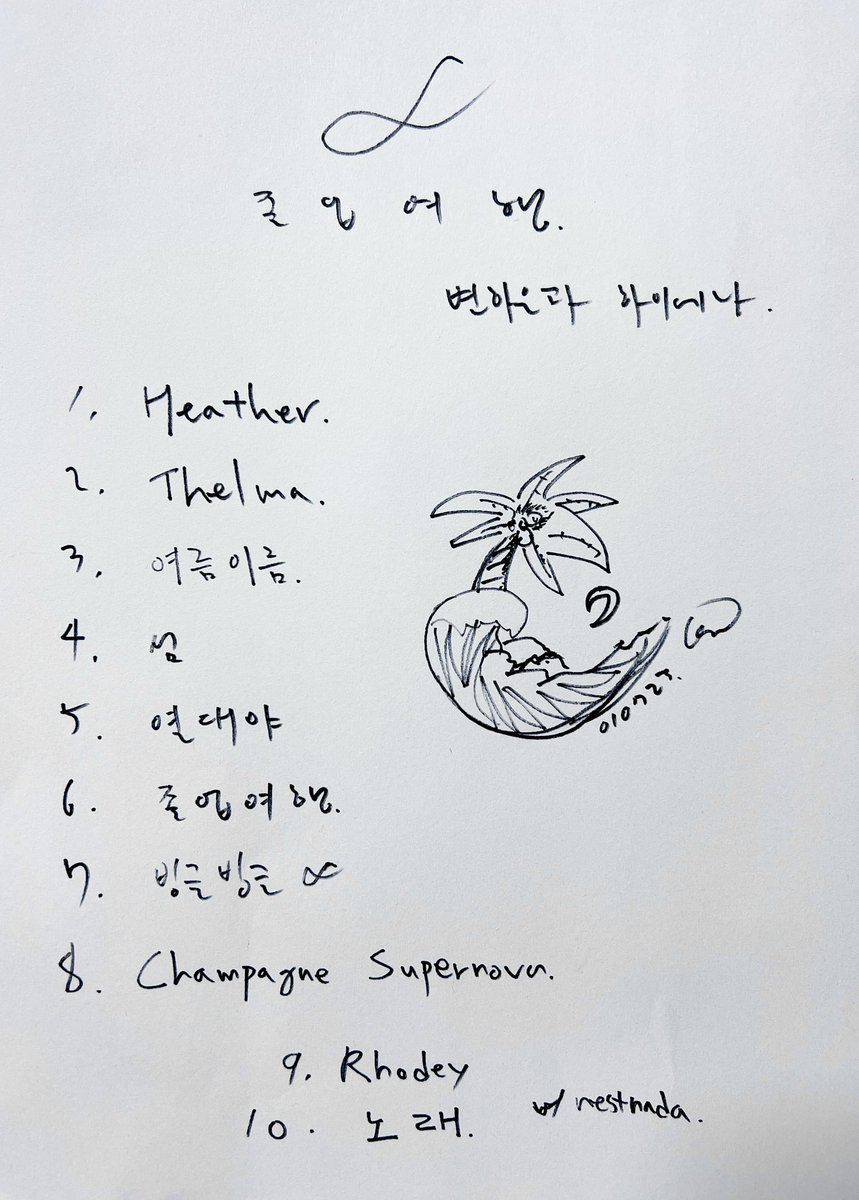 ∝
졸업여행.
변하은과 하이에나.
1. Heather.
2. Thelma.
3. 여름이름.
4. 섬
5. 열대야
6. 졸업여행.
7. 빙글빙글 ∝
010725.
8. Champagne Supernova.
9. Rhodey
10. 노래.
w/ nestnada.